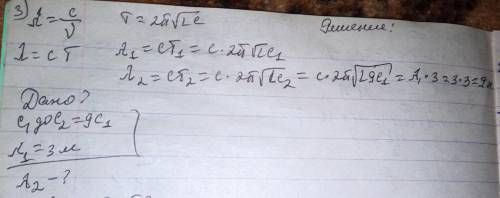 3) λ = c/ν   T = 2π√LC   Решение:
λ = cT   λ₁ = cT₁ = c·2π√LC₁
λ₂ = cT₂ = c·2π√LC₂ = c·2π√L9C₁ = λ₁·3 = 3·3 = 9м
Дано?
C₁ до C₂ = 9C₁
λ₁ = 3 м
λ₂ - ?